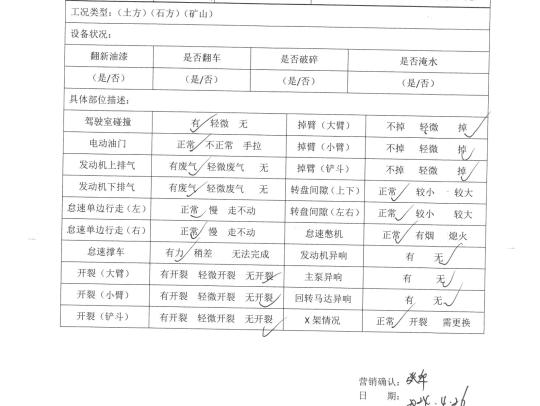 工况类型:(土方)(石方)(矿山)
设备状况:
翻新油漆 是否翻车 是否破碎 是否淹水
(是/否) (是/否) (是/否) (是/否)
具体部位描述:
驾驶室碰撞 有 轻微 无 掉臂(大臂) 不掉 轻微 掉
电动油门 正常 不正常 手拉 掉臂(小臂) 不掉 轻微 掉
发动机上排气 有废气 轻微废气 无 掉臂(铲斗) 不掉 轻微 掉
发动机下排气 有废气 轻微废气 无 转盘间隙(上下) 正常 较小 较大
怠速单边行走(左) 正常 慢 走不动 转盘间隙(左右) 正常 较小 较大
怠速单边行走(右) 正常 慢 走不动 怠速憋机 正常 有烟 熄火
怠速撑车 有力 稍差 无法完成 发动机异响 有 无
开裂(大臂) 有开裂 轻微开裂 无开裂 主泵异响 有 无
开裂(小臂) 有开裂 轻微开裂 无开裂 回转马达异响 有 无
开裂(铲斗) 有开裂 轻微开裂 无开裂 X架情况 正常 开裂 需更换
营销确认:
日 期: 2024.4.26